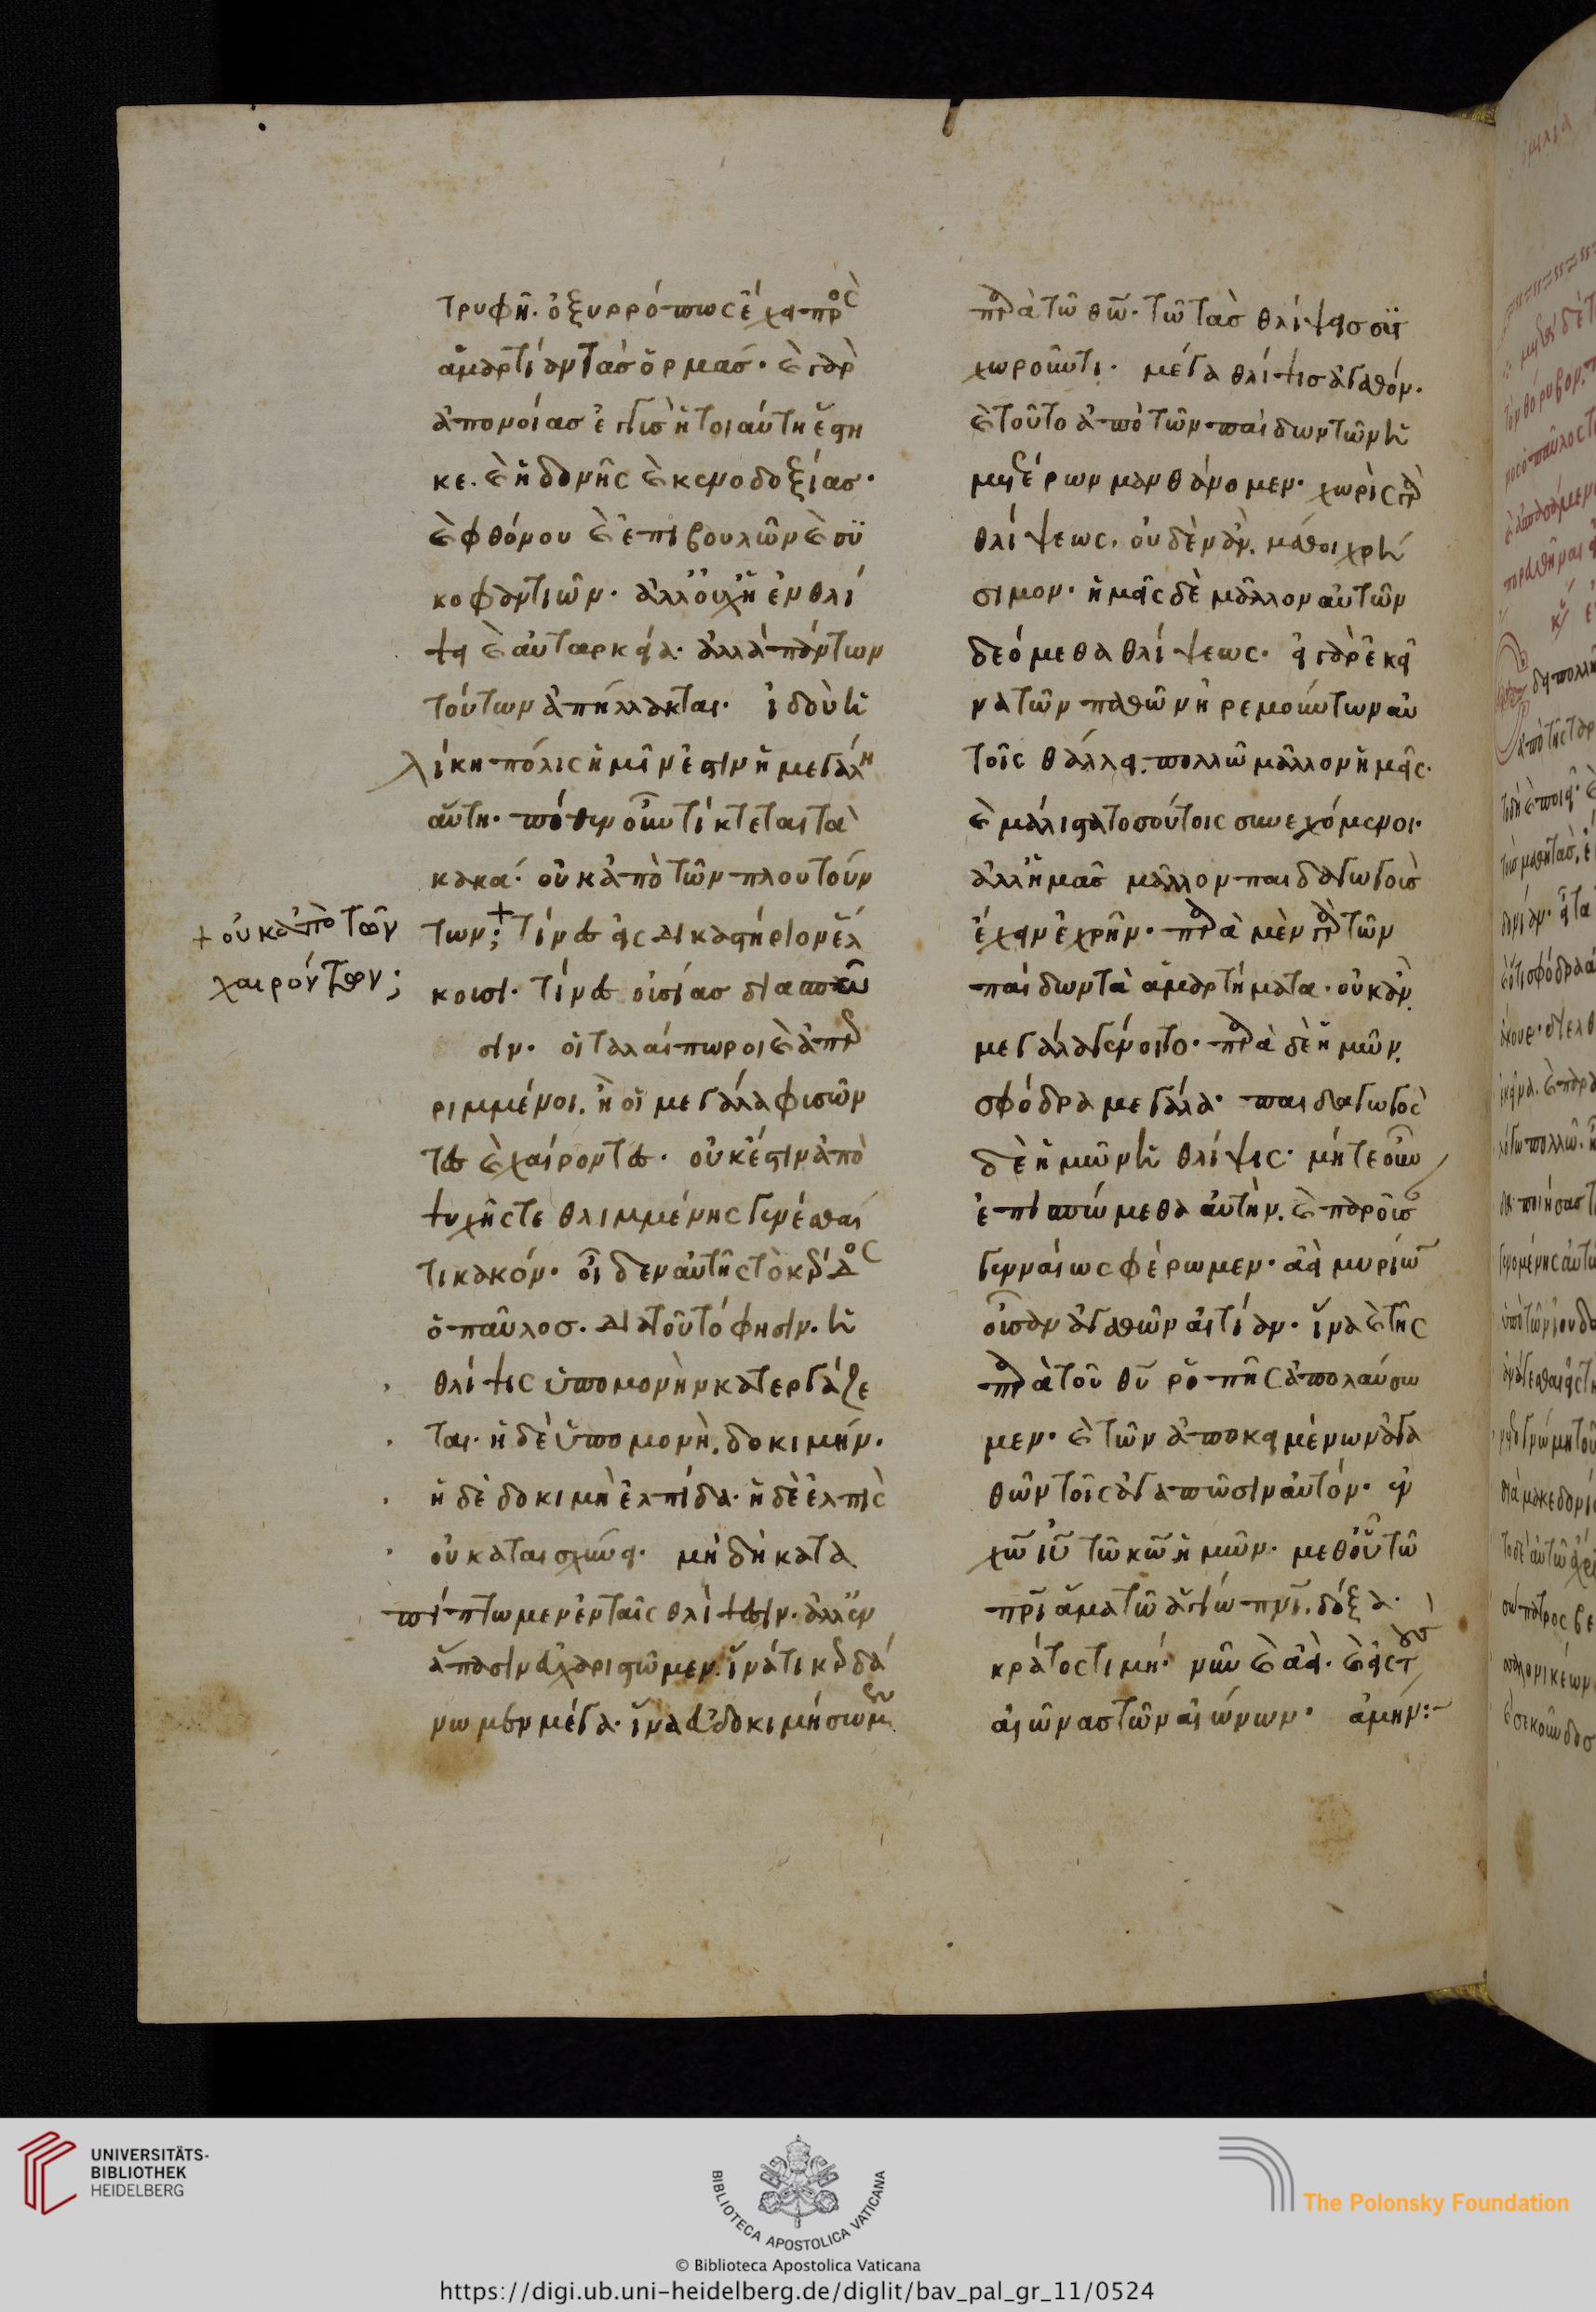 τρυφῆ. ὀξυρρόπως ἔχει πρὸς
ἁμαρτίαν τὰς ὁρμάς. καὶ γὰρ
ἀπονοίας ἐγγὺς ἡ τοιαύτη ἕστη
κε. καὶ ἡδονῆς καὶ κενοδοξίας.
καὶ φθόνου καὶ ἐπιβουλῶν καὶ συ
κοφαντιῶν. ἀλλ' οὐχ ἡ ἐν θλί
ψει καὶ αὐταρκεία. ἀλλὰ πάντων
τούτων ἀπήλλακται. ἰδοὺ ἡ
λίκη πόλις ἡμῖν ἐστιν ἡ μεγάλη
αὕτη. πόθεν οὖν τίκτεται τὰ
κακά. οὐκ ἀπὸ τῶν πλουτούν
των; + τίνες εἰς δικαστήριον ἕλ
κουσι. τίνες οὐσίας διασπῶ
σιν. οἱ ταλαίπωροι καὶ ἀπερ
ριμμένοι. ἢ οἱ μεγάλα φυσῶν
τες καὶ χαίροντες. οὐκ ἔστιν ἀπὸ
ψυχῆς τεθλιμμένης γενέσθαι
τι κακόν. οἶδεν αὐτῆς τὸ κέρδος
ὁ παῦλος. διὰ τοῦτό φησιν. ἡ
θλίψις ὑπομονὴν κατεργάζε
ται. ἡ δὲ ὑπομονὴ, δοκιμήν.
ἡ δὲ δοκιμὴ ἐλπίδα. ἡ δὲ ἐλπὶς
οὐ καταισχύνει. μὴ δὴ κατα
πίπτωμεν ἐν ταῖς θλίψεσιν. ἀλλ' ἐν
ἅπασιν εὐχαριστῶμεν. ἵνά τι κερδά
νωμεν μέγα. ἵνα εὐδοκιμήσωμεν
+ οὐκ ἀπὸ τῶν
χαιρόντων;
παρὰ τῶ θῶ. τῶ τὰς θλίψεις συγ
χωροῦντι. μέγα θλίψις ἀγαθόν.
καὶ τοῦτο ἀπὸ τῶν παίδων τῶν ἡ
μετέρων μανθάνομεν. χωρὶς γὰρ
θλίψεως, οὐδὲν ἂν μάθοι χρή
σιμον. ἡμεῖς δὲ μᾶλλον αὐτῶν
δεόμεθα θλίψεως. εἰ γὰρ ἐκεῖ
να τῶν παθῶν ἠρεμούντων αὐ
τοῖς θάλλει, πολλῶ μᾶλλον ἡμεῖς.
καὶ μάλιστα τοσούτοις συνεχόμενοι.
ἀλλ' ἡμᾶς μᾶλλον παιδαγωγοὺς
ἔχειν ἐχρῆν. παρὰ μὲν γὰρ τῶν
παίδων τὰ ἁμαρτήματα. οὐκ ἂν
μεγάλα γένοιτο. παρὰ δὲ ἡμῶν,
σφόδρα μεγάλα. παιδαγωγὸς
δὲ ἡμῶν ἡ θλίψις. μήτε οὖν
ἐπισπώμεθα αὐτὴν, καὶ παροῦσαν
γενναίως φέρωμεν. ἀεὶ μυρίων
οὖσαν ἀγαθῶν αἰτίαν. ἵνα καὶ τῆς
παρὰ τοῦ θυ ῥοπῆς ἀπολαύσω
μεν. καὶ τῶν ἀποκειμένων ἀγα
θῶν τοῖς ἀγαπῶσιν αὐτόν. ἐν
χω ιυ τῶ κω ἡμῶν. μεθ' οὗ τῶ
πρι ἅμα τῶ ἁγίω πνι, δόξα.
κράτος τιμή. νῦν καὶ ἀεὶ. καὶ εἰς τοὺς
αἰῶνας τῶν αἰώνων. ἀμήν:~
UNIVERSITÄTS-
BIBLIOTHEK
HEIDELBERG
BIBLIOTECA APOSTOLICA VATICANA
The Polonsky Foundation
© Biblioteca Apostolica Vaticana
https://digi.ub.uni-heidelberg.de/diglit/bav_pal_gr_11/0524